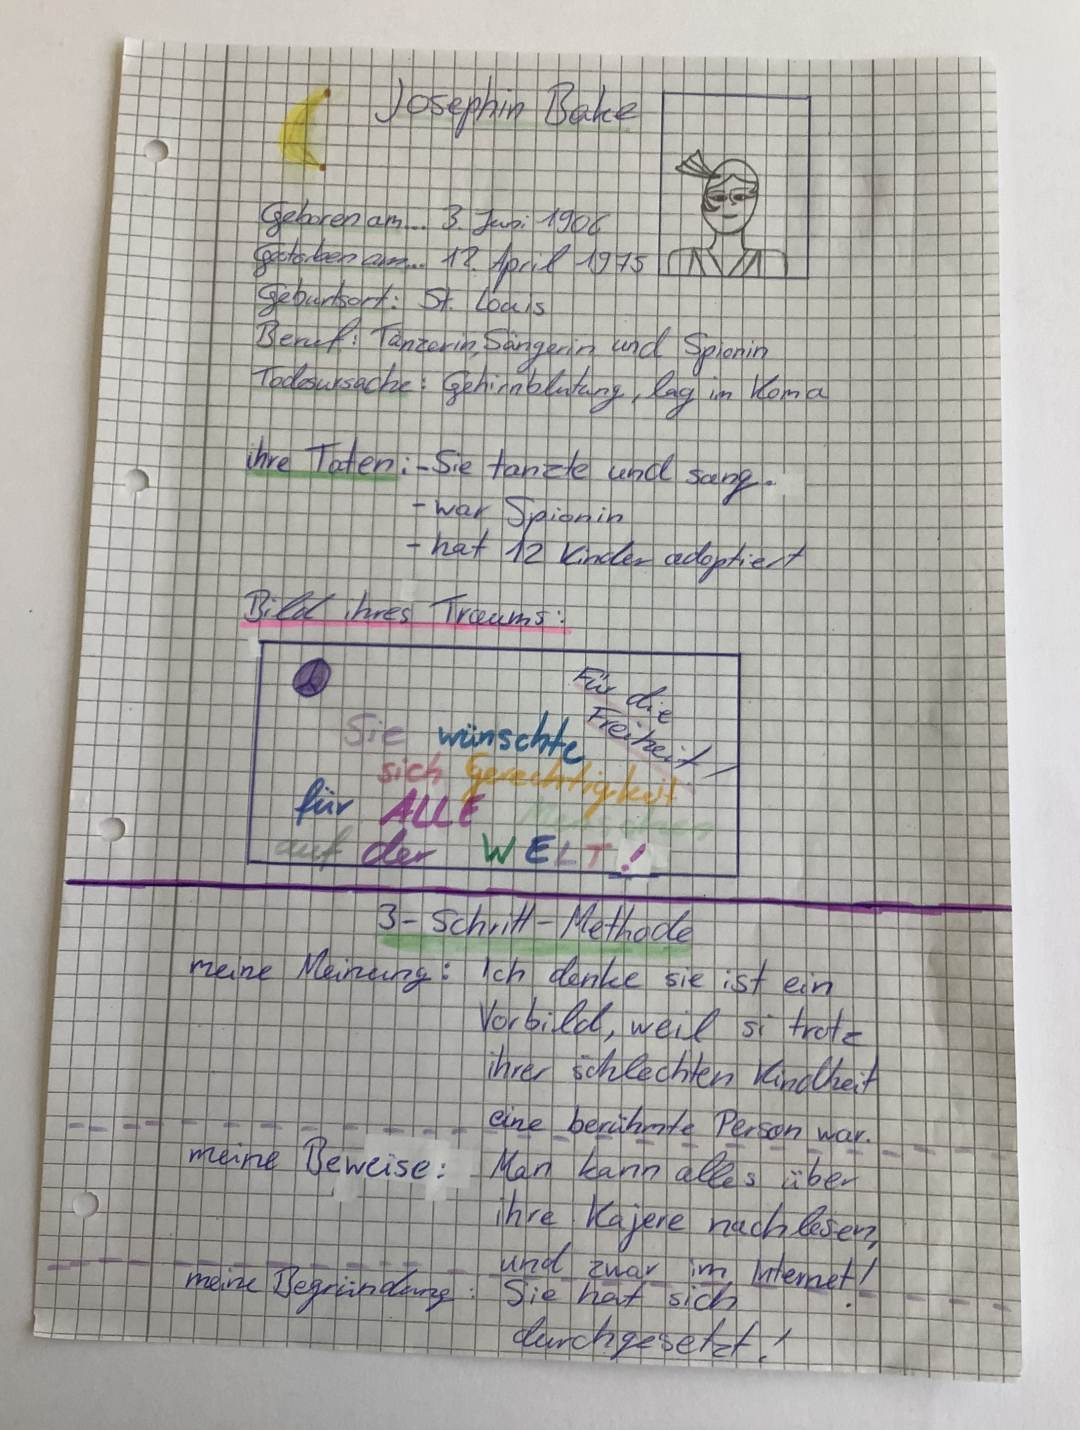 Josephin Bake
Geboren am... 3. Juni 1906
Gestorben am... 12. April 1975
Geburtsort: St. Louis
Beruf: Tänzerin, Sängerin und Spionin
Todesursache: Gehirnblutung, lag im Koma
ihre Taten: - Sie tanzte und sang.
- war Spionin
- hat 12 Kinder adoptiert
Bild ihres Traums:
Für die
Freiheit!
Sie wünschte
sich Gerechtigkeit
für ALLE Menschen
auf der WELT!
3-Schritt-Methode
meine Meinung: Ich denke sie ist ein
Vorbild, weil si trotz
ihrer schlechten Kindheit
eine berühmte Person war.
meine Beweise: Man kann alles über
ihre Kajere nachlesen,
und zwar im Internet!
meine Begründung: Sie hat sich
durchgesetzt!